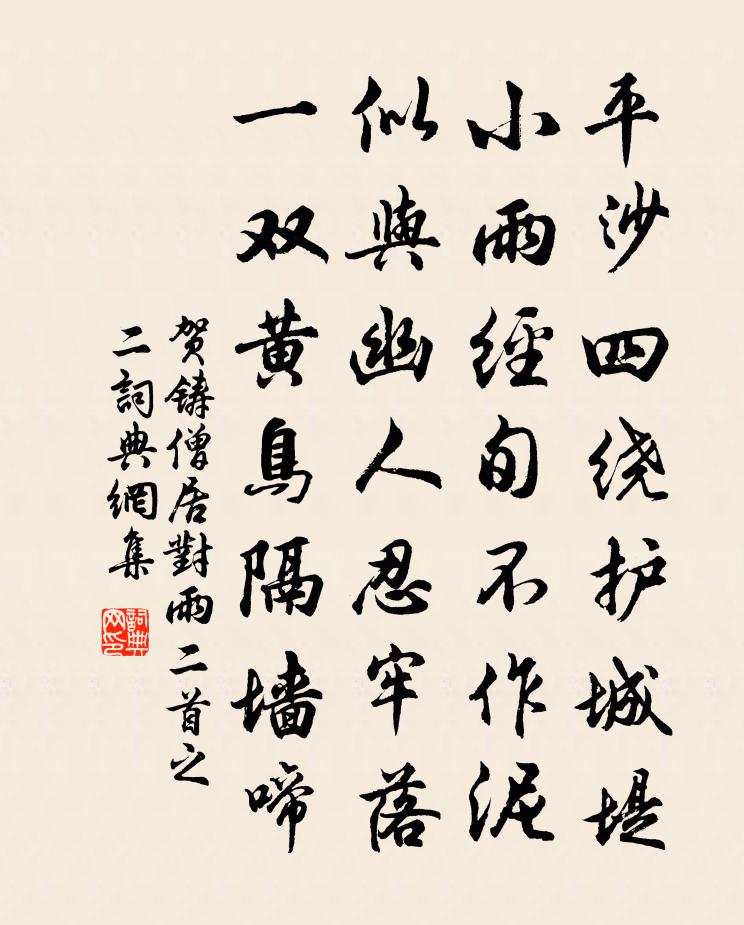 平沙四绕护城堤
小雨經旬不作泥
似與幽人忍牢落
一双黄鳥隔墙啼
贺鑄僧居對雨二首之
二詞典網集
詞典
网印